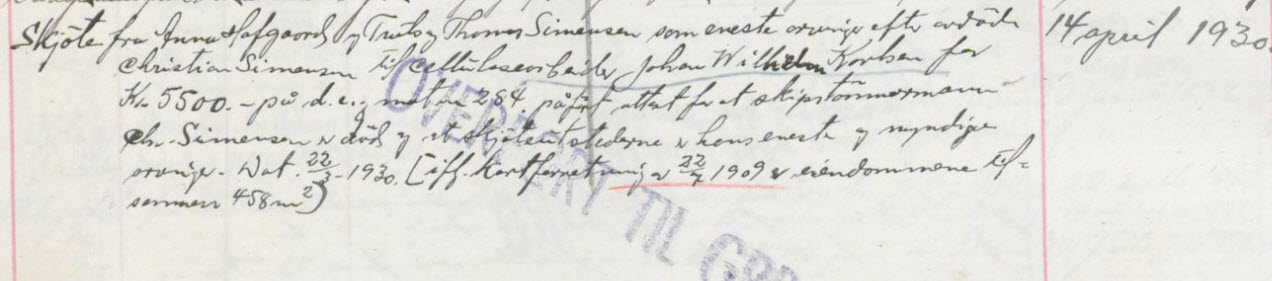 Skjøte fra Anna Hafgaord og Truls og Thomas Simensen som eneste arvinger efter avdøde
Christian Simensen til cellulosearbeider Johan Wilhelm Karlsen for
Kr. 5500.- på d. e. matr. nr 284, påført attest for at skipstømmermann
Chr. Simensen er død og at skjøteutstederne er hans eneste og myndige
arvinger. Dat. 22/3-1930. [iflg. kartforretning av 22/7 1909 er eiendommene til-
sammen 458 m²)
14 april 1930.
OVERFØRT TIL